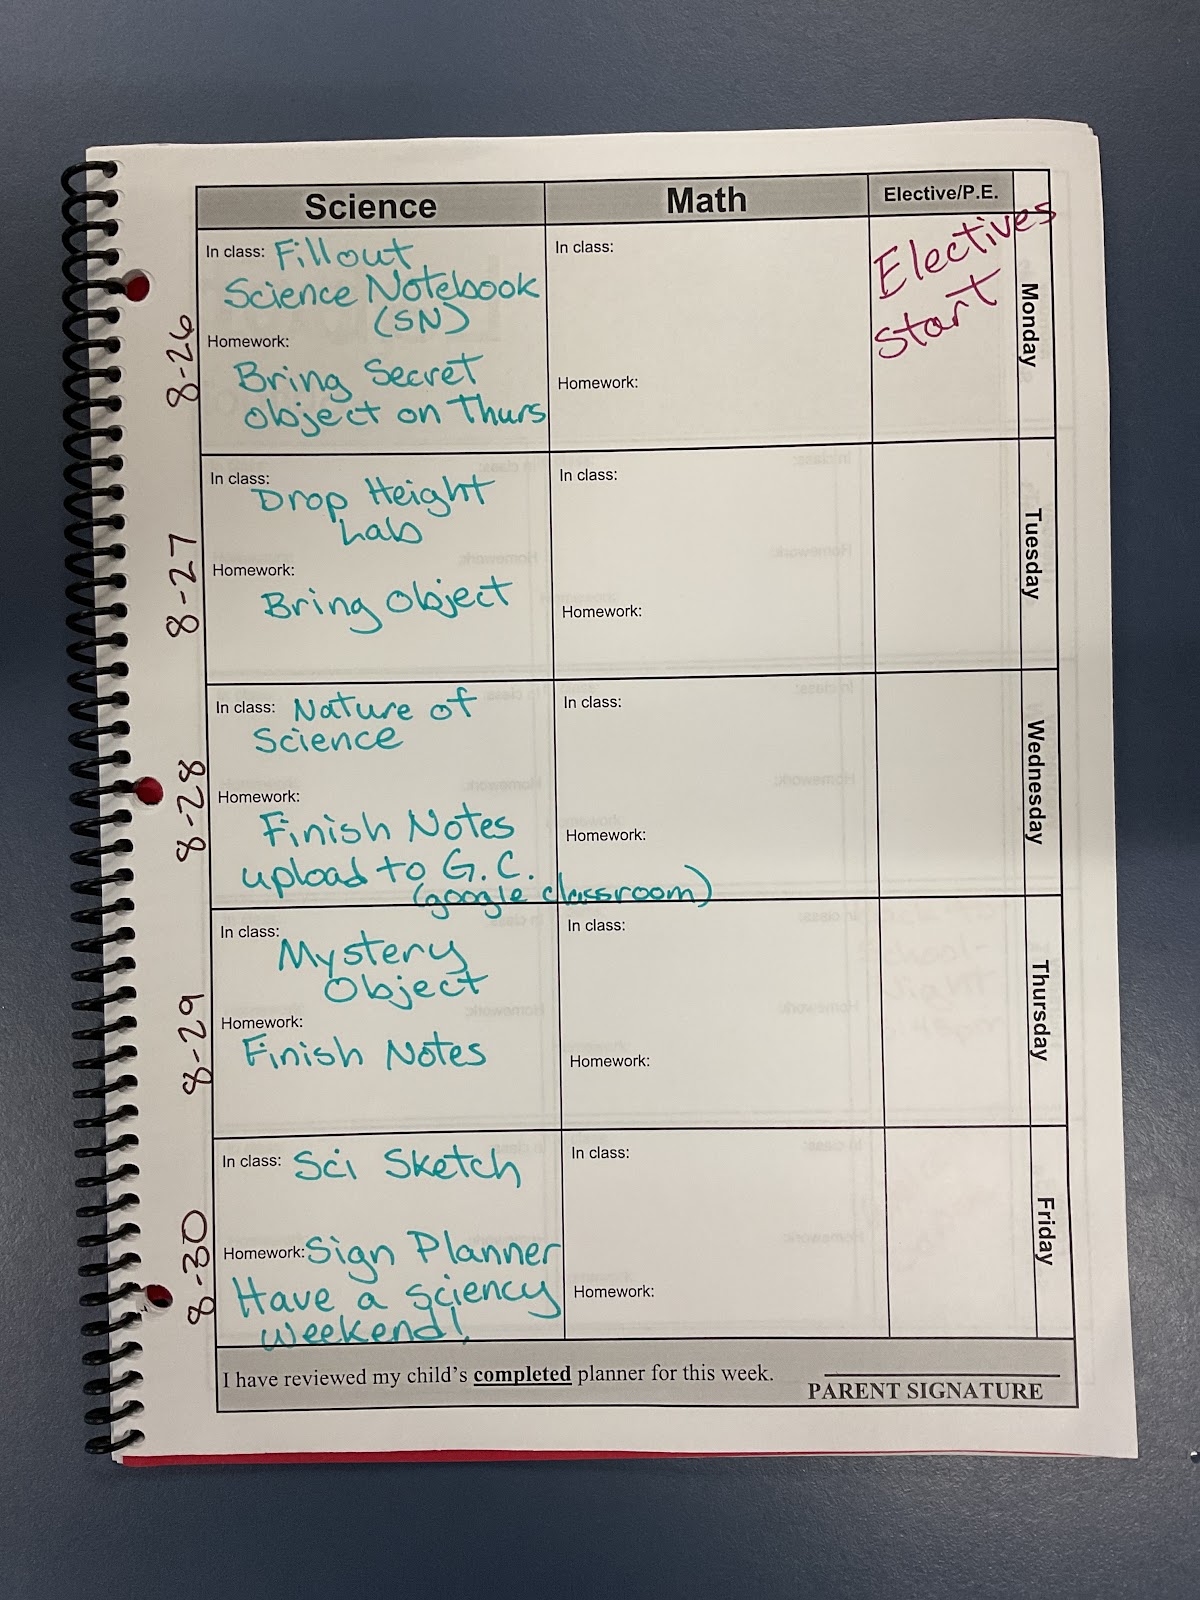 Science
Math
Elective/P.E.
8-26
In class: Fill out
Science Notebook
(SN)
Homework:
Bring Secret
object on Thurs
In class:
Homework:
Electives
start
Monday
8-27
In class:
Drop Height
Lab
Homework:
Bring Object
In class:
Homework:
Tuesday
8-28
In class: Nature of
Science
Homework:
Finish Notes
upload to G.C.
(google classroom)
In class:
Homework:
Wednesday
8-29
In class:
Mystery
Object
Homework:
Finish Notes
In class:
Homework:
Thursday
8-30
In class: Sci Sketch
Homework: Sign Planner
Have a sciency
weekend!
In class:
Homework:
Friday
I have reviewed my child's completed planner for this week.
PARENT SIGNATURE